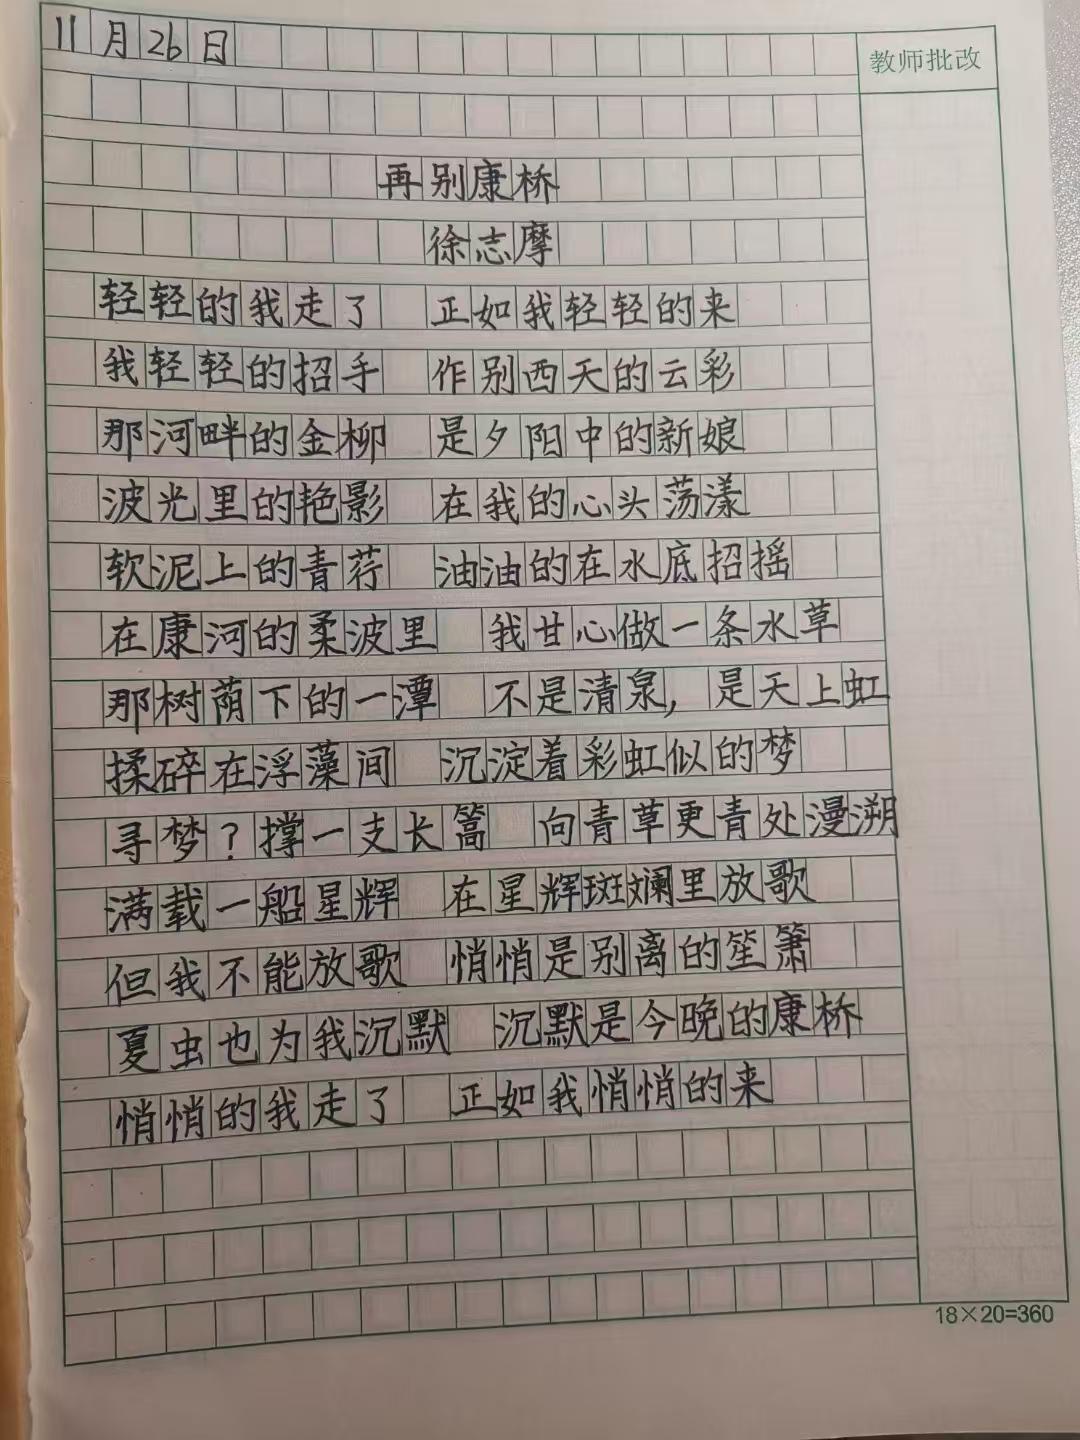 11月26日
教师批改
再别康桥
徐志摩
轻轻的我走了 正如我轻轻的来
我轻轻的招手 作别西天的云彩
那河畔的金柳 是夕阳中的新娘
波光里的艳影 在我的心头荡漾
软泥上的青荇 油油的在水底招摇
在康河的柔波里 我甘心做一条水草
那树荫下的一潭 不是清泉,是天上虹
揉碎在浮藻间 沉淀着彩虹似的梦
寻梦?撑一支长篙 向青草更青处漫溯
满载一船星辉 在星辉斑斓里放歌
但我不能放歌 悄悄是别离的笙箫
夏虫也为我沉默 沉默是今晚的康桥
悄悄的我走了 正如我悄悄的来
18×20=360